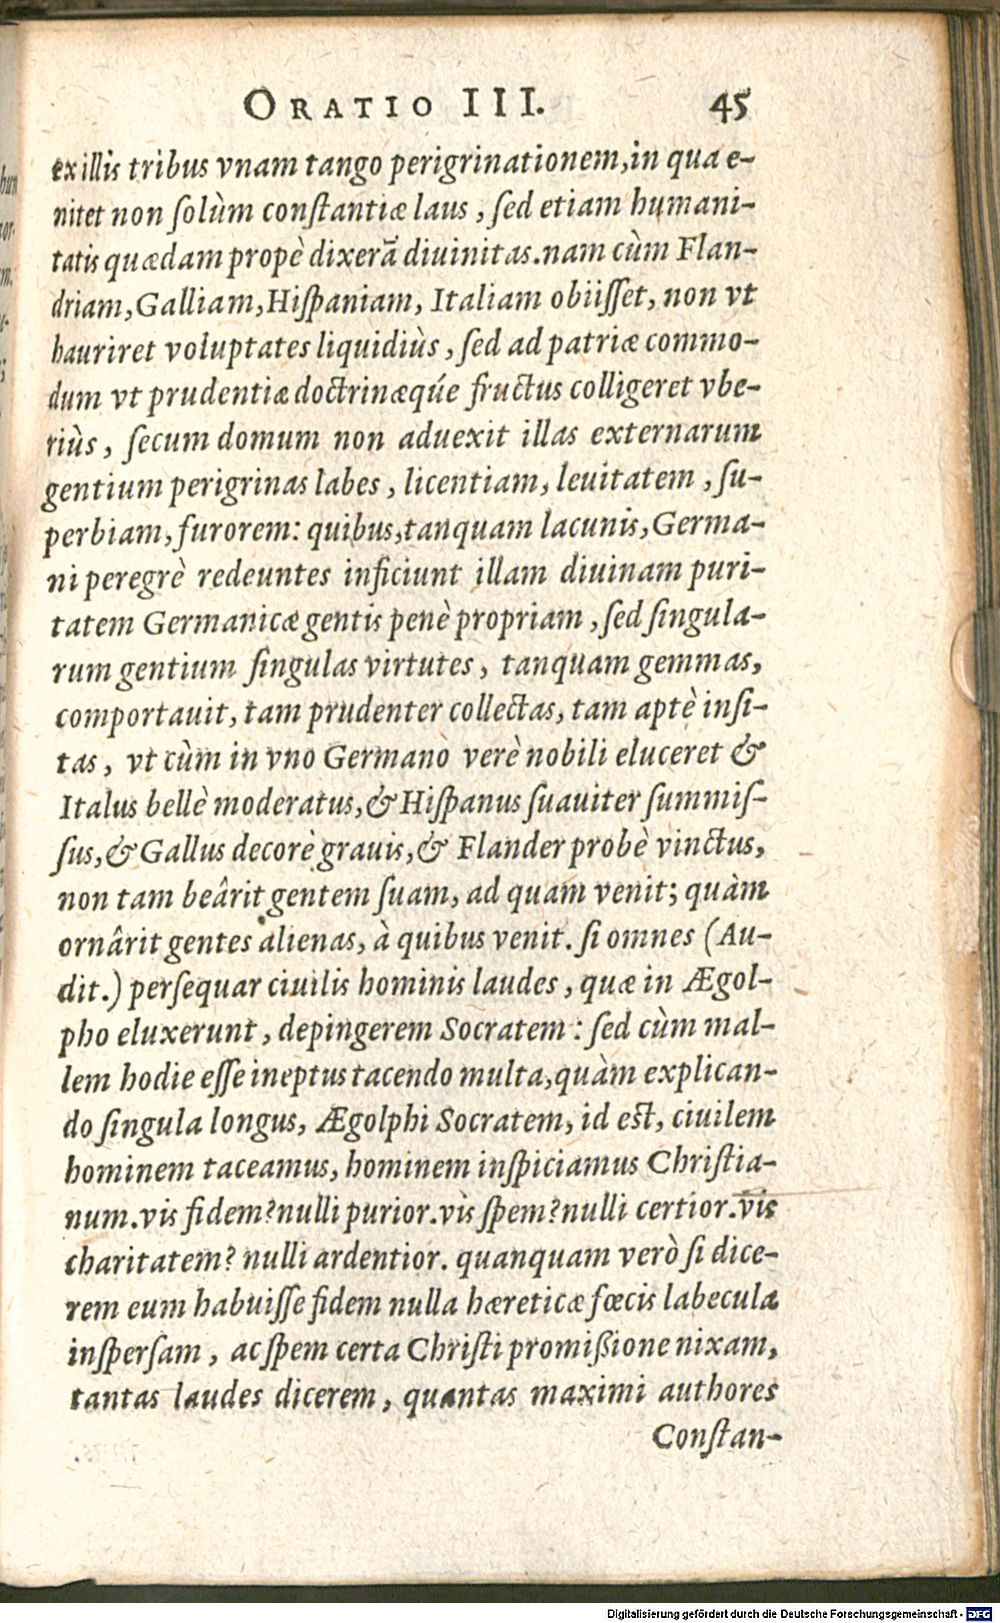 ORATIO III. 45
ex illis tribus vnam tango perigrinationem, in qua e-
nitet non ſolùm conſtantiæ laus, ſed etiam humani-
tatis quædam propè dixerã diuinitas. nam cùm Flan-
driam, Galliam, Hiſpaniam, Italiam obiiſſet, non vt
hauriret voluptates liquidiùs, ſed ad patriæ commo-
dum vt prudentiæ doctrinæqúe fructus colligeret vbe-
riùs, ſecum domum non aduexit illas externarum
gentium perigrinas labes, licentiam, leuitatem, ſu-
perbiam, furorem: quibus, tanquam lacunis, Germa-
ni peregrè redeuntes inficiunt illam diuinam puri-
tatem Germanicæ gentis penè propriam, ſed ſingula-
rum gentium ſingulas virtutes, tanquam gemmas,
comportauit, tam prudenter collectas, tam aptè inſi-
tas, vt cùm in vno Germano verè nobili eluceret &
Italus bellè moderatus, & Hiſpanus ſuauiter ſummiſ-
ſus, & Gallus decorè grauis, & Flander probè vinctus,
non tam beârit gentem ſuam, ad quam venit; quàm
ornârit gentes alienas, à quibus venit. ſi omnes (Au-
dit.) perſequar ciuilis hominis laudes, quæ in Ægol-
pho eluxerunt, depingerem Socratem: ſed cùm mal-
lem hodie eſſe ineptus tacendo multa, quàm explican-
do ſingula longus, Ægolphi Socratem, id eſt, ciuilem
hominem taceamus, hominem inſpiciamus Chriſtia-
num. vis fidem? nulli purior. vis ſpem? nulli certior. vis
charitatem? nulli ardentior. quanquam verò ſi dice-
rem eum habuiſſe fidem nulla hæreticæ fœcis labecula
inſperſam, ac ſpem certa Chriſti promiſsione nixam,
tantas laudes dicerem, quantas maximi authores
Conſtan-
Digitalisierung gefördert durch die Deutsche Forschungsgemeinschaft - DFG